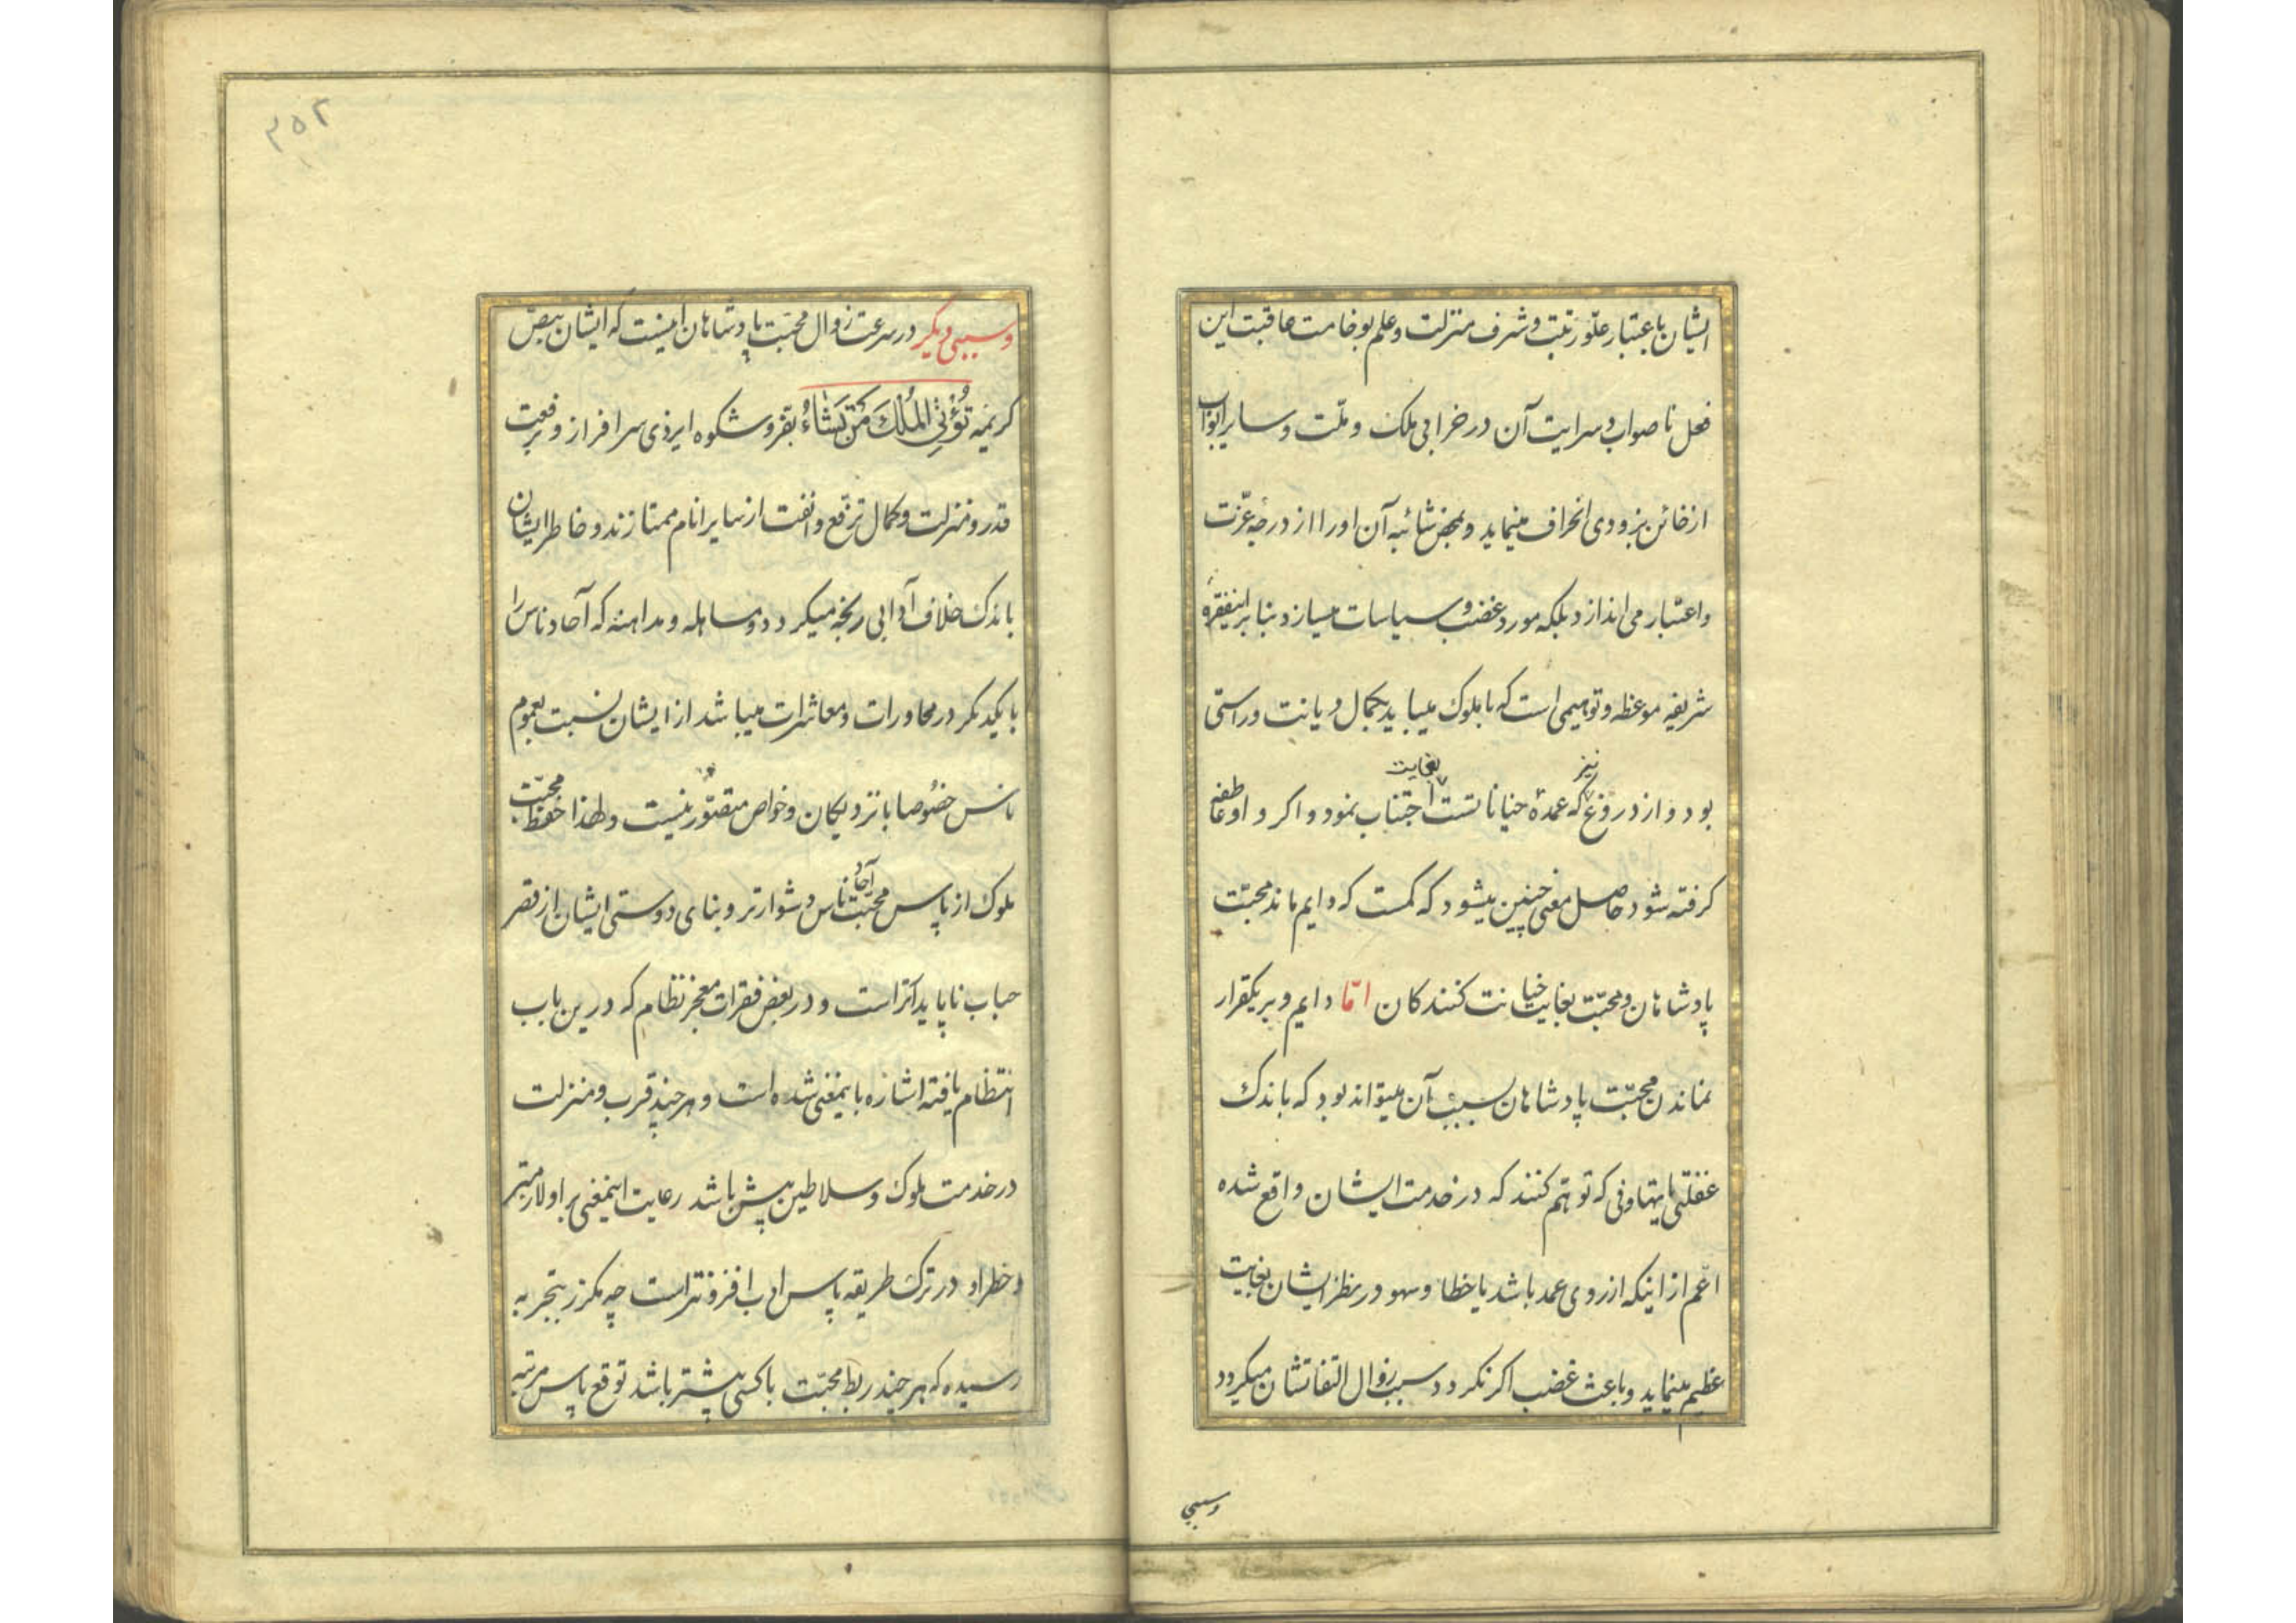 ایشان باعتبار علّو رتبت و شرف منزلت و علم بوخامت عاقبت این
فعل ناصواب و سرایت آن در خرابی ملک و ملّت و سایر ابواب
از خائن بزودی انحراف مینماید و بمحض شائبه آن او را از درجهٔ عزّت
و اعتبار می اندازد بلکه مورد غضب و سیاسات میسازد بنا بر اینفقرهٔ
شریفه موعظه و توهیمی است که با ملوک میباید بکمال دیانت و راستی
نیز بغایت
بود و از دروغ که عمدهٔ خیانا تست اجتناب نمود و اکر واو عاطفه
کرفته شود حاصل معنی چنین میشود که کمست که دایم ماند محبّت
پادشاهان و محبّت بغایت خیانت کنندکان امّا دایم و بر یکقرار
نماندن محبّت پادشاهان سبب آن میتواند بود که باندک
غفلتی یا تهاونی که توهّم کنند که در خدمت ایشان واقع شده
اعّم از اینکه از روی عمد باشد یا خطا و سهو در نظر ایشان بغایت
عظیم مینماید و باعث غضب اکر نکردد سبب زوال التفاتشان میکردد
وسببی
۳۵۲
وسببی دیکر در سرعت زوال محبّت پادشاهان اینست که ایشان بنصّ
کریمه تُؤْتِی المُلْکَ مَنْ تَشَاءُ بفرّ و شکوه ایزدی سرافراز و برفعت
قدر و منزلت و کمال ترفّع و انفت از سایر انام ممتازند و خاطر ایشان
باندک خلاف آدابی رنجه میکردد و مساهله و مداهنه که آحاد ناس را
با یکدیکر در محاورات و معاشرات میباشد از ایشان نسبت بعموم
ناس خصوصا با نزدیکان و خواص متصوّر نیست و لهذا حفظ محبّت
آحاد
ملوک از پاس محبّت ناس دشوارتر و بنای دوستی ایشان از قصر
حباب ناپایدارتر است و در بعض فقرات معجز نظام که درین باب
انتظام یافته اشاره باینمعنی شده است و هر چند قرب و منزلت
در خدمت ملوک و سلاطین بیش باشد رعایت اینمعنی بر او لازمتر
و خطر او در ترک طریقه پاس ادب افزونتر است چه مکرر بتجربه
رسیده که هر چند ربط محبّت با کسی بیشتر باشد توقع پاس مرتبه